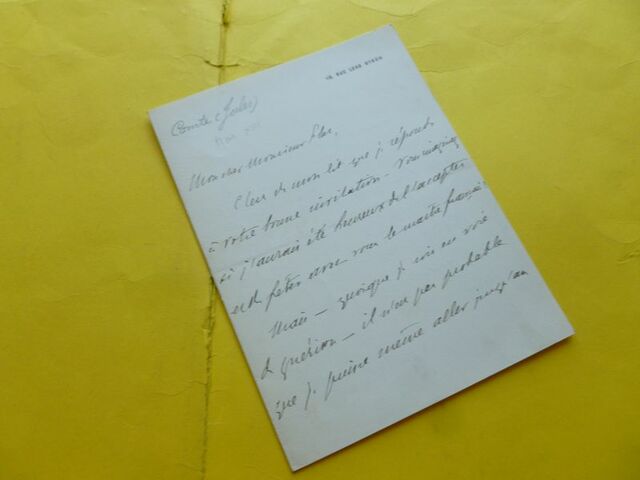 18, RUE LORD BYRON
Comte (Jules)
Mon cher Monsieur
C'est de mon lit que je réponds
à votre bonne invitation. Vous imaginez
si j'aurais été heureux de l'accepter
et de fêter avec vous le maître français
Mais — quoique je sois en voie
de guérison — il n'est pas probable
que je puisse même aller jusqu'au